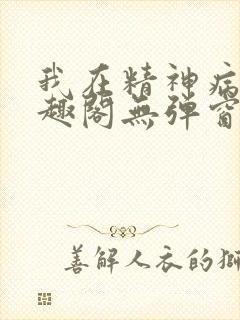 我在精神病
趣閣無彈窗
善解人衣的獅